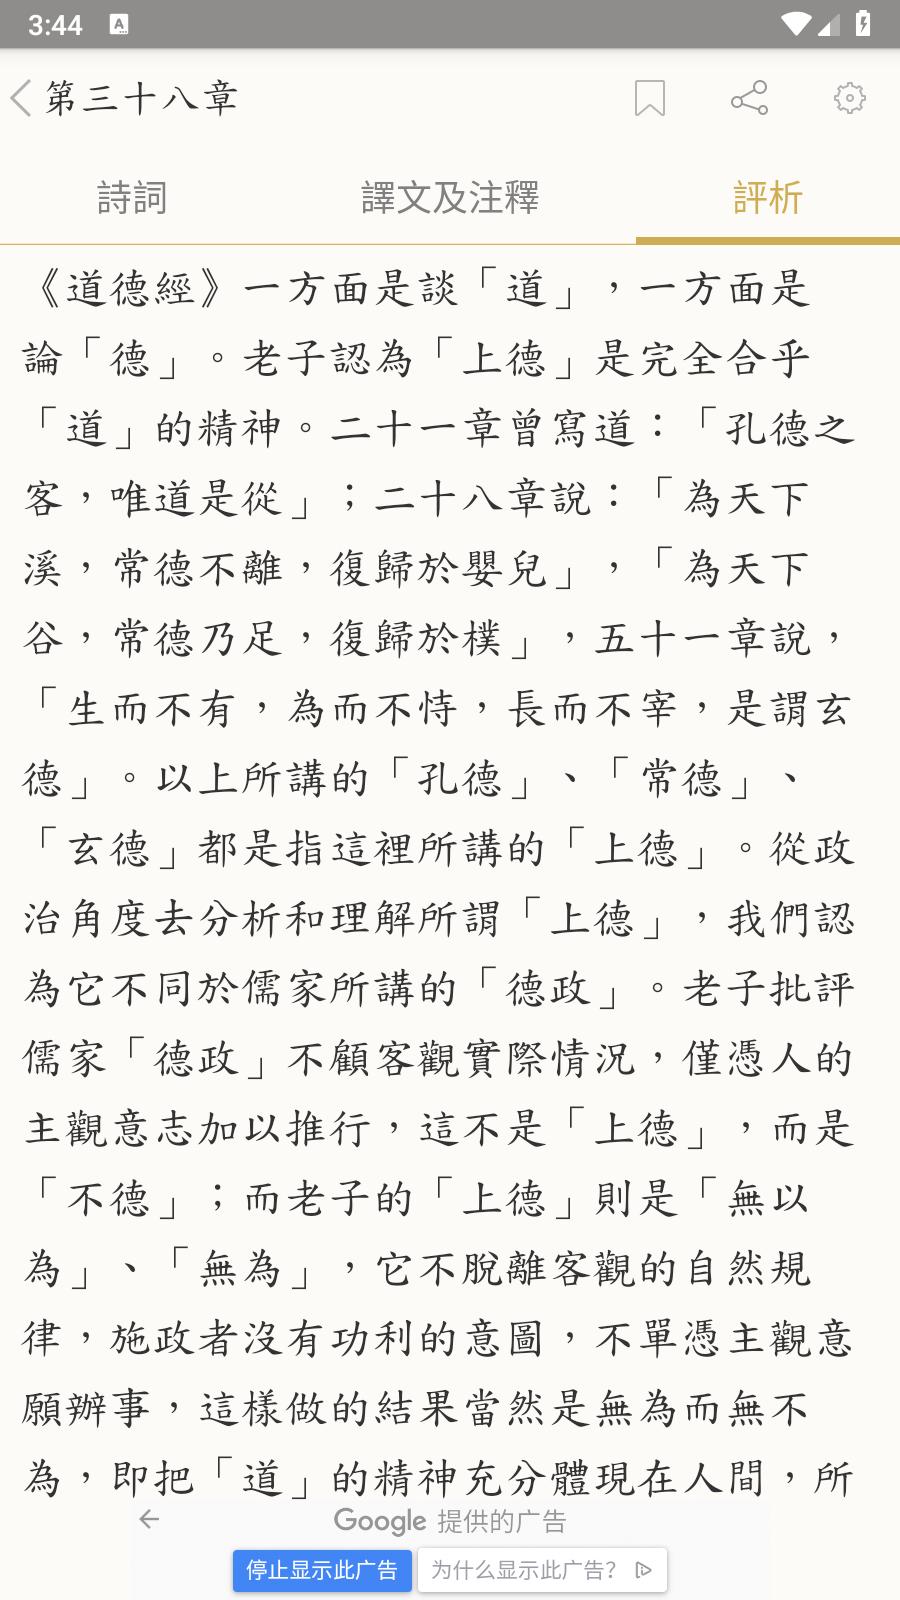 3:44
第三十八章
詩詞
譯文及注釋
評析
《道德經》一方面是談「道」，一方面是
論「德」。老子認為「上德」是完全合乎
「道」的精神。二十一章曾寫道：「孔德之
客，唯道是從」；二十八章說：「為天下
溪，常德不離，復歸於嬰兒」，「為天下
谷，常德乃足，復歸於樸」，五十一章說，
「生而不有，為而不恃，長而不宰，是謂玄
德」。以上所講的「孔德」、「常德」、
「玄德」都是指這裡所講的「上德」。從政
治角度去分析和理解所謂「上德」，我們認
為它不同於儒家所講的「德政」。老子批評
儒家「德政」不顧客觀實際情況，僅憑人的
主觀意志加以推行，這不是「上德」，而是
「不德」；而老子的「上德」則是「無以
為」、「無為」，它不脫離客觀的自然規
律，施政者沒有功利的意圖，不單憑主觀意
願辦事，這樣做的結果當然是無為而無不
為，即把「道」的精神充分體現在人間，所
Google 提供的广告
停止显示此广告
为什么显示此广告？